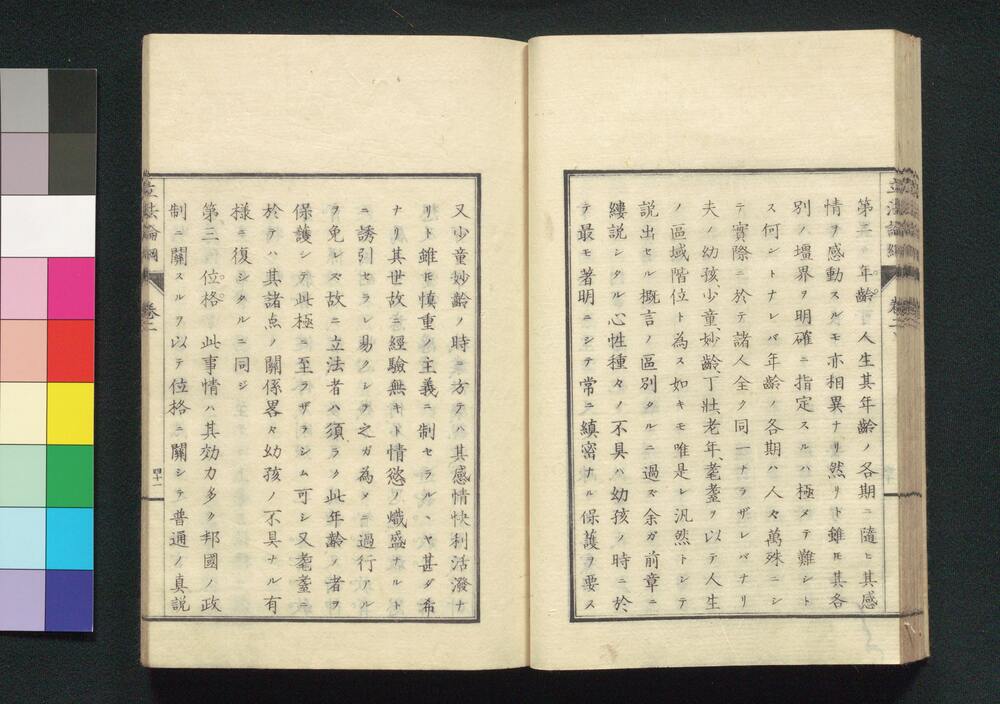 第二　年齡　人生其年齡ノ各期ニ隨ヒ其感
情ヲ感動スルモ亦相異ナリ然リト雖𪜈其各
別ノ壃界ヲ明確ニ指定スルハ極メテ難シト
ス何ントナレバ年齡ノ各期ハ人々萬殊ニシ
テ實際ニ於テ諸人全ク同一ナラザレバナリ
夫ノ幼孩、少童、妙齡、丁壯、老年、耄耋ヲ以テ人生
ノ區域階位ト為ス如キモ唯是レ汎然トシテ
說出セル概言ノ區別タルニ過ズ余ガ前章ニ
縷說シタル心性種々ノ不具ハ幼孩ノ時ニ於
テ最モ著明ニシテ常ニ縝密ナル保護ヲ要ス
又少童妙齡ノ時ニ方テハ其感情快利活潑ナ
リト雖𪜈慎重ノ主義ニ制セラルヽヤ甚ダ希
ナリ其世故ニ經驗無キト情慾ノ熾盛ナルト
ニ誘引セラレ易クレヲ之ガ為メニ過行アル
ヲ免レズ故ニ立法者ハ須ラク此年齡ノ者ヲ
保護シテ此極ニ至ラザラシム可シ又耄耋ニ
於テハ其諸点ノ關係畧々幼孩ノ不具ナル有
樣ニ復シタルニ同ジ
第三　位格　此事情ハ其効力多ク邦國ノ政
制ニ關スルヲ以テ位格ニ關シテ普通ノ真說
立法論綱　卷二　四十一
立法論綱　卷二